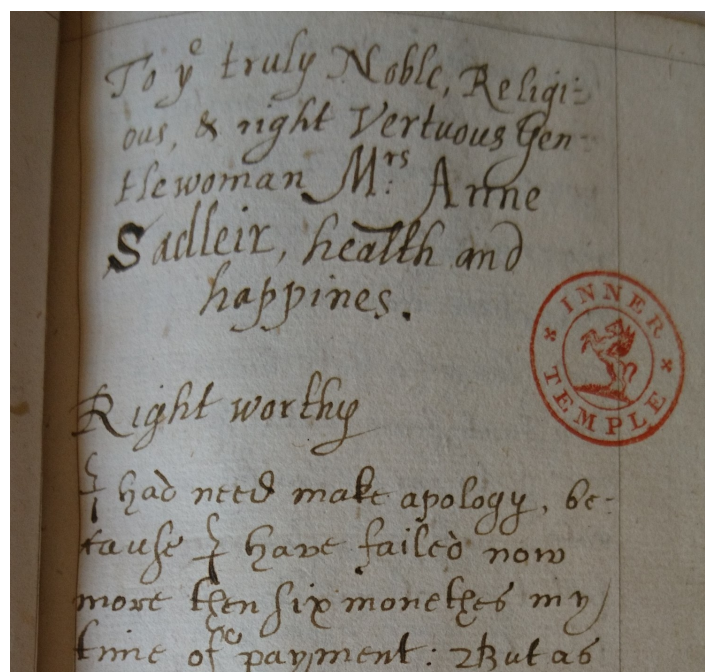 To yᵉ truly Noble, Religi-
ous, & right Vertuous Gen-
tlewoman Mʳˢ: Anne
Sadleir, health and
happines.
INNER
TEMPLE
Right worthy
I had need make apology, be-
cause I have failed now
more then six monethes my
time of payment: But as